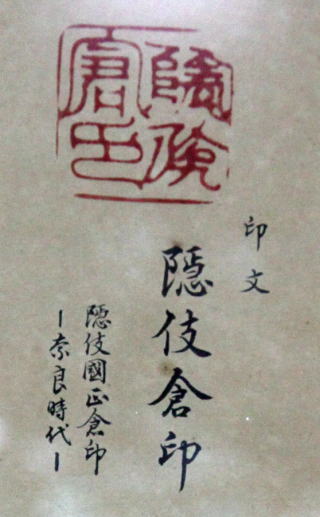 隱伎
倉印
印文
隱伎倉印
隱伎國正倉印
ー奈良時代ー